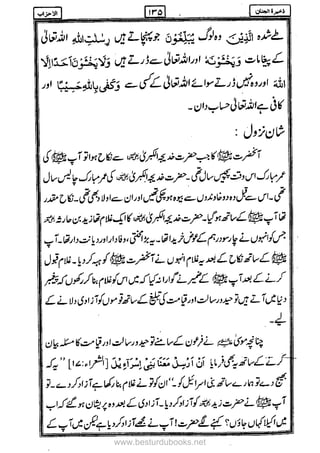 ذخيرة الجنان ١٣٥ الاحزاب
طے شدہ الَّذِيْنَ وہ لوگ يُبَلِّغُوْنَ جو پہنچاتے ہیں رِسٰلٰتِ اللّٰهِ اللہ تعالیٰ
کے پیغامات وَيَخْشَوْنَهٗ اور اللہ تعالیٰ سے ڈرتے ہیں وَلَا يَخْشَوْنَ اَحَدًا اِلَّا
اللّٰهَ اور وہ نہیں ڈرتے سوائے اللہ تعالیٰ کے کسی سے وَكَفٰى بِاللّٰهِ حَسِيْبًا اور
کافی ہے اللہ تعالیٰ حساب دان۔
شان نزول :
آنحضرت ﷺ کا جب حضرت خدیجۃ الکبریٰ سے نکاح ہوا تو آپ ﷺ کی
عمر مبارک اس وقت پچیس سال تھی۔ حضرت خدیجۃ الکبریٰ کی عمر مبارک چالیس سال
تھی۔ اس سے قبل وہ دو خاوندوں سے بیوہ ہو چکی تھیں اور ان سے اولاد بھی تھی۔ نکاح مقدر
تھا آپ ﷺ کے ساتھ ہو گیا۔ حضرت خدیجۃ الکبریٰ کا ایک غلام تھا زید بن حارثہ
جس کو انہوں نے چار سو درہم کے عوض خریدا تھا۔ یہ بڑا محنتی، وفادار اور دیانت دار تھا۔ آپ
ﷺ کے ساتھ نکاح کے بعد یہ غلام انہوں نے آنحضرت ﷺ کو ہبہ کر دیا۔ غلام قبول
کرنے کے بعد آپ ﷺ کے ضمیر نے گوارا نہ کیا کہ میں اس کو غلام بنا کر رکھوں کہ پیغمبر
دنیا میں آتے ہیں توحید و رسالت اور قیامت کی تبلیغ کے ساتھ قوموں کو آزادی دلانے کے
لیے۔
چنانچہ موسیٰ نے فرعون کے سامنے توحید و رسالت اور قیامت کا مسئلہ بیان
کرنے کے ساتھ یہ بھی فرمایا اَنْ اَرْسِلْ مَعَنَا بَنِيْ اِسْرَآءِيْلَ [الشعراء:١٧] "یہ کہ
بھیج دے تو ہمارے ساتھ بنی اسرائیل کو۔" ان کو تو نے غلام بنا کر رکھا ہے آزاد کر دے۔ تو
آپ ﷺ نے حضرت زید کو آزاد کر دیا۔ آزادی کے بعد وہ پریشان ہو گئے کہ اب
میں اکیلا کہاں جاؤں؟ کہنے لگے حضرت! آپ نے مجھے آزاد کر دیا ہے لیکن میں آپ کے
www.besturdubooks.net